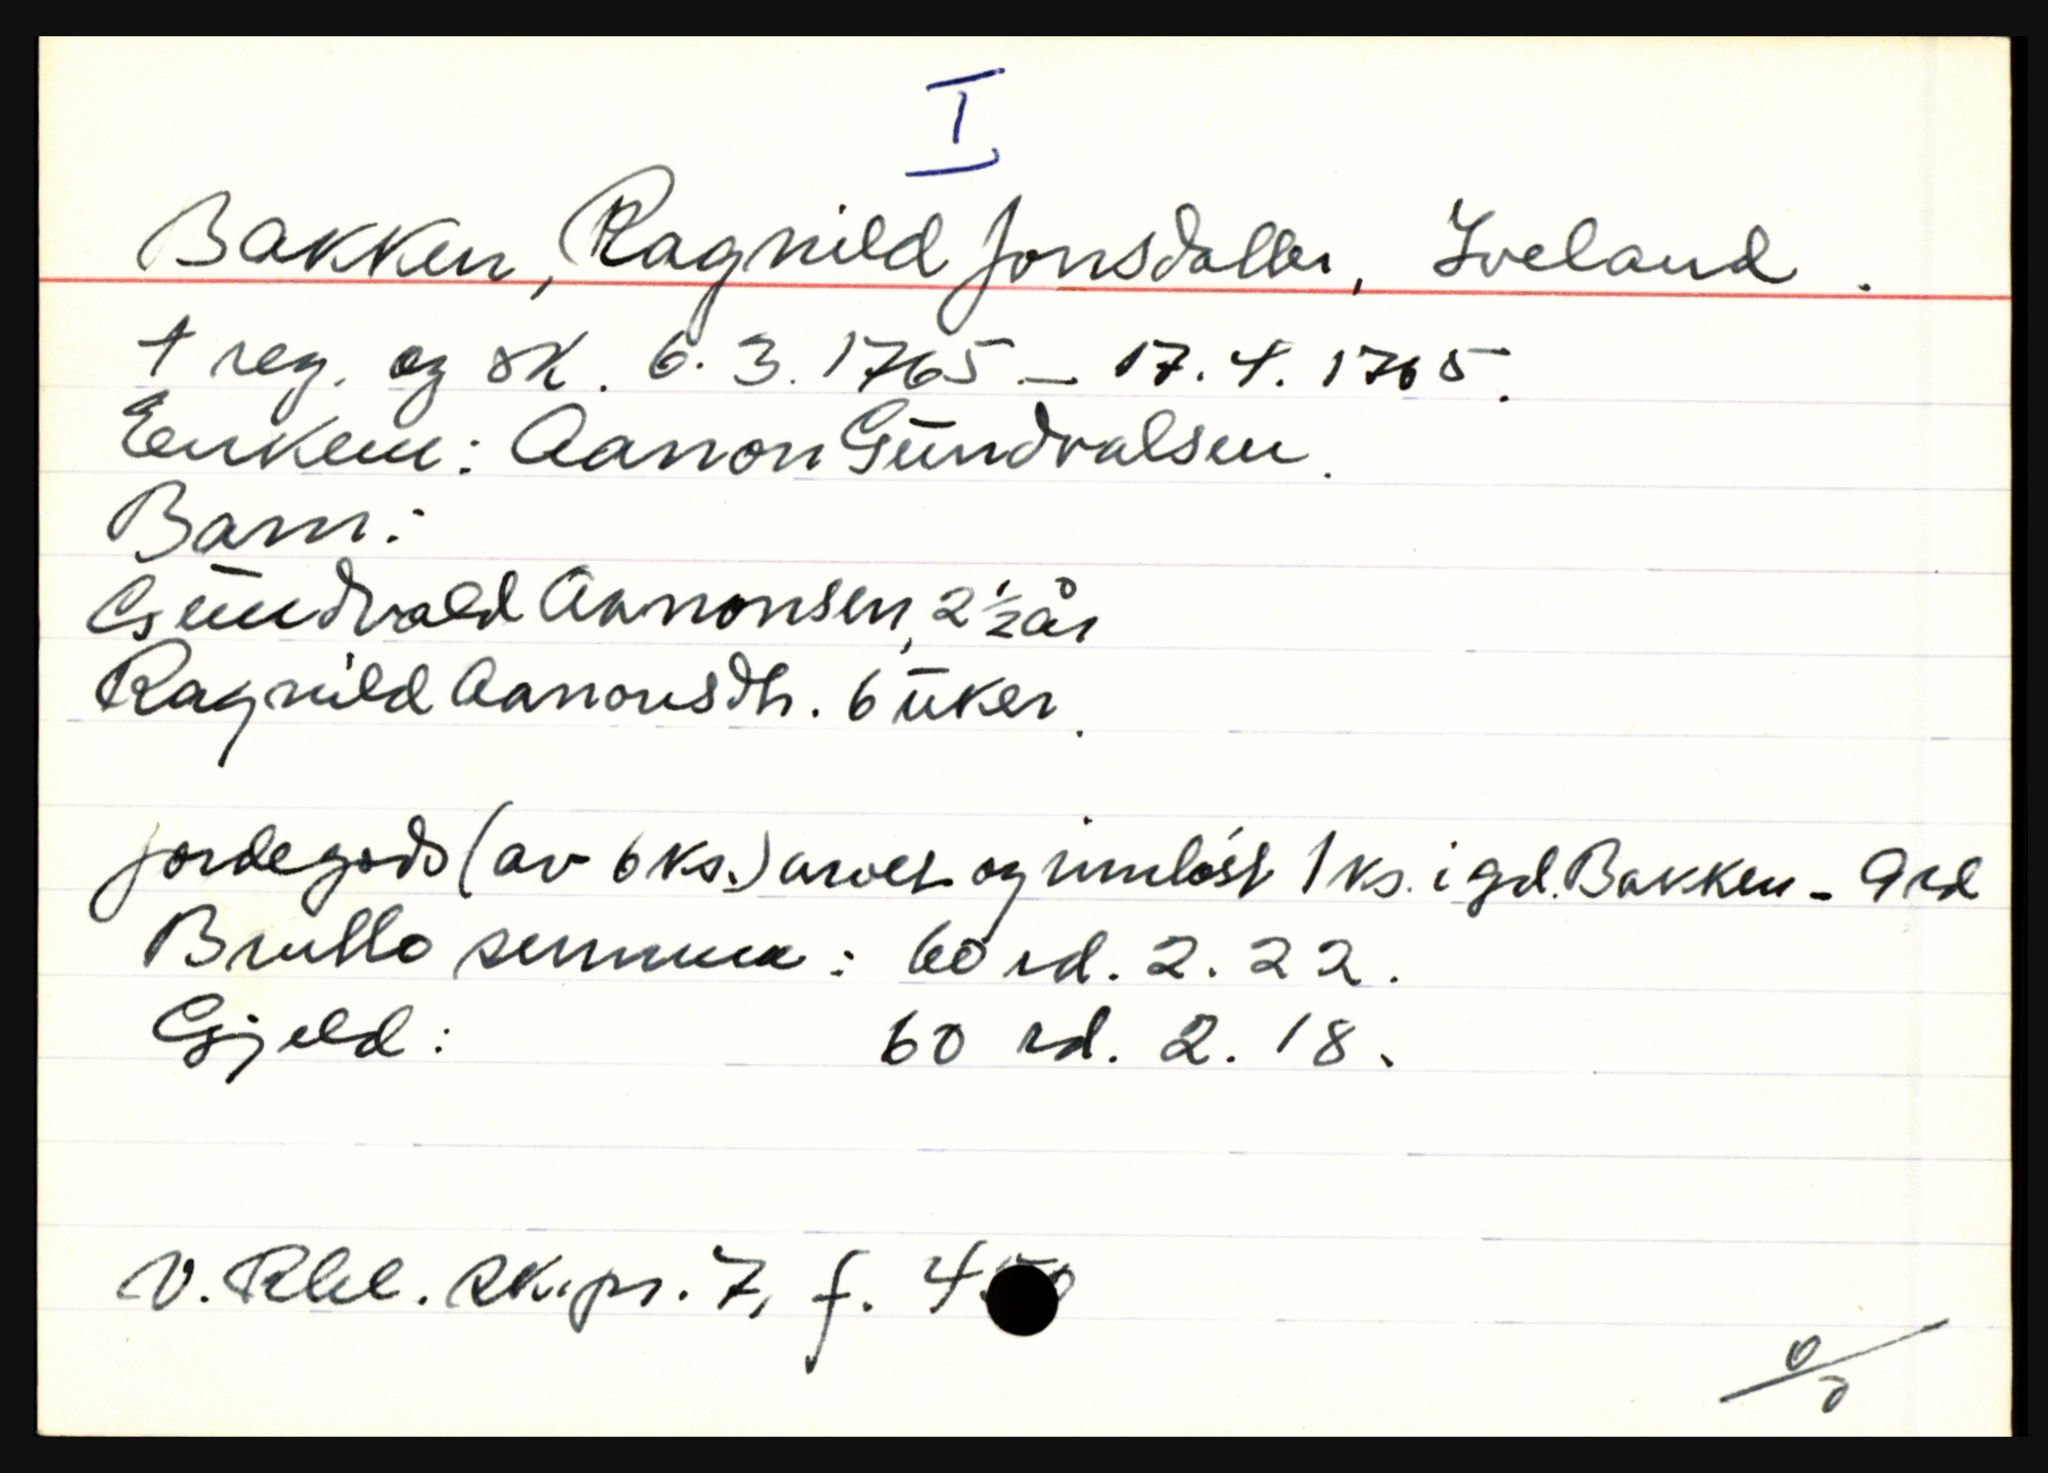 I
Bakken, Ragnild Jonsdatter, Iveland.
† reg. og sk. 6.3.1765 – 17.4.1765.
Enkem: Aanon Gundvalsen.
Barn:
Gundvald Aanonsen, 2 1/2 år
Ragnild Aanonsdtr. 6 uker.
Jordegods (av 6 ks.) arvet og innløst 1 ks. i gd. Bakken – 9 rd
Brutto summa: 60 rd. 2. 22.
Gjeld: 60 rd. 2. 18.
V. Rbl. sk.pr. 7, f. 450